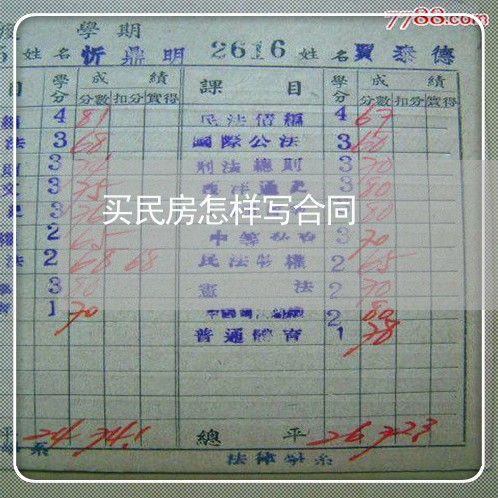 7788.com
學期
姓名 忻鼎明 2616 姓名 賈泰德
目 學分 成績 課目 學分 成績
分數 扣分 實得 分數 扣分 實得
4 81 民法債編 4 67
法 3 68 國際公法 3 60
3 刑法總則 3 70
3 75 西洋通史 3 80
3 3 80
2 65 3 70
法 2 68 68 民法物權 2 65
3 80 憲法 2 70
1 70 2 80
普通體育 1 78
買民房怎样写合同
平 24 74.1 總平 26 72.3
系 法律學系